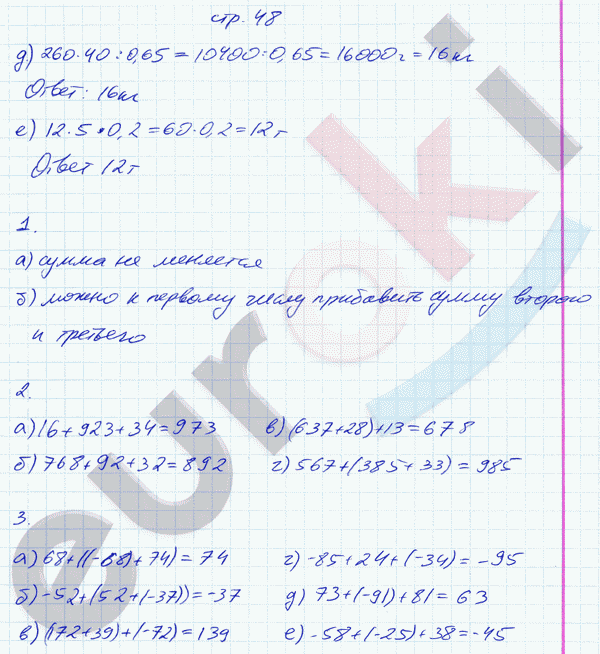 стр. 48
д) 260·40:0,65=10400:0,65=16000г=16кг
Ответ: 16кг
е) 12·5·0,2=60·0,2=12г
Ответ 12г
1.
а) сумма не меняется
б) можно к первому числу прибавить сумму второго
и третьего
2.
а) 16+923+34=973 в) (637+28)+13=678
б) 768+92+32=892 г) 567+(385+33)=985
3.
а) 68+((-68)+74)=74 г) -85+24+(-34)=-95
б) -52+(52+(-37))=-37 д) 73+(-91)+81=63
в) (172+39)+(-72)=139 е) -58+(-25)+38=-45
euroki